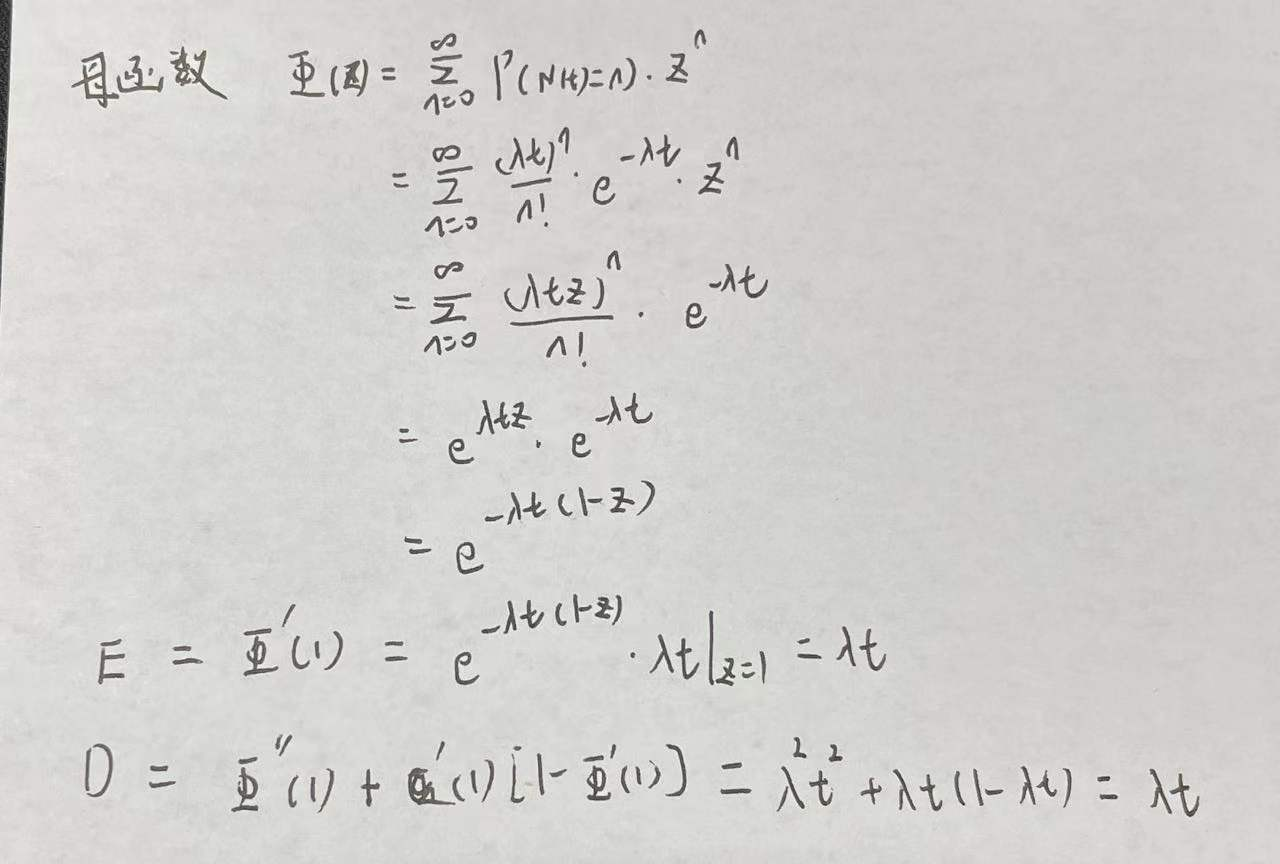 母函数 Φ(z) = ∑_{n=0}^{∞} P(N(t)=n)·z^n
= ∑_{n=0}^{∞} (λt)^n/n! · e^{-λt} · z^n
= ∑_{n=0}^{∞} (λtz)^n/n! · e^{-λt}
= e^{λtz} · e^{-λt}
= e^{-λt(1-z)}
E = Φ'(1) = e^{-λt(1-z)} · λt|_{z=1} = λt
D = Φ''(1) + Φ'(1)[1-Φ'(1)] = λ²t² + λt(1-λt) = λt